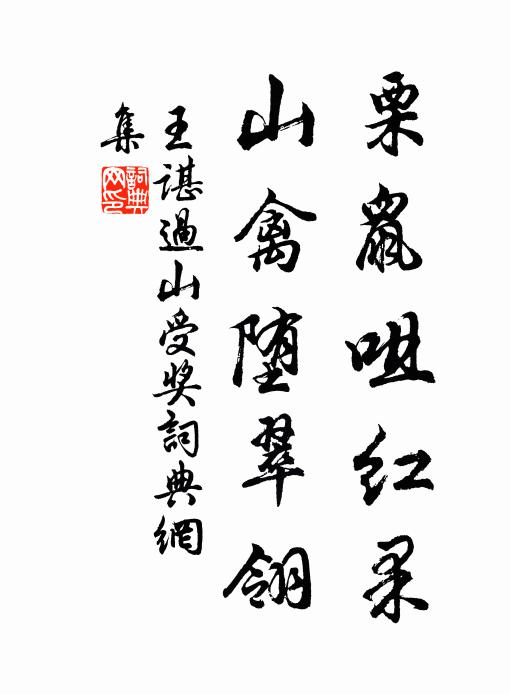 栗鼠咀红果
山禽堕翠翎
王諶過山受奖詞典網
集
詞典网印